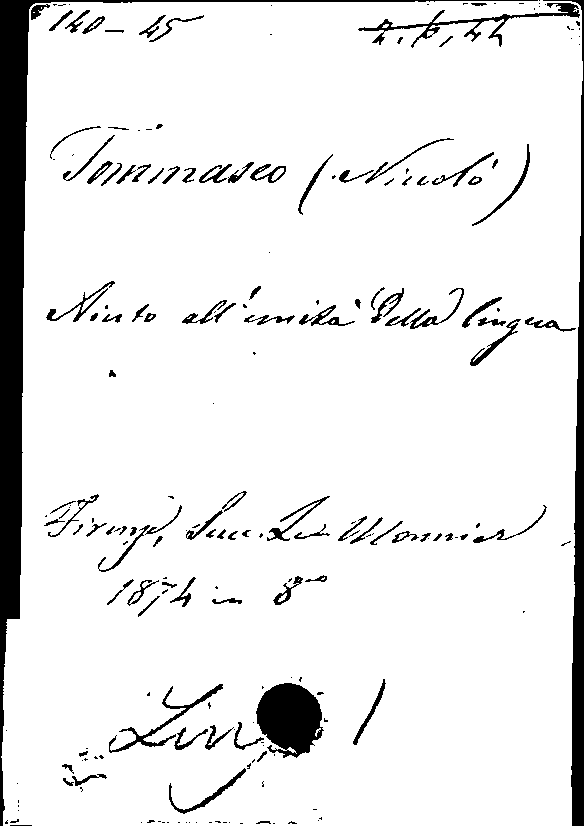 140-45 2.6.42
Tommaseo (Niccolò)
Aiuto all'unità della lingua
Firenze, Succ. Le Monnier
1874 in 8º
Ling 1